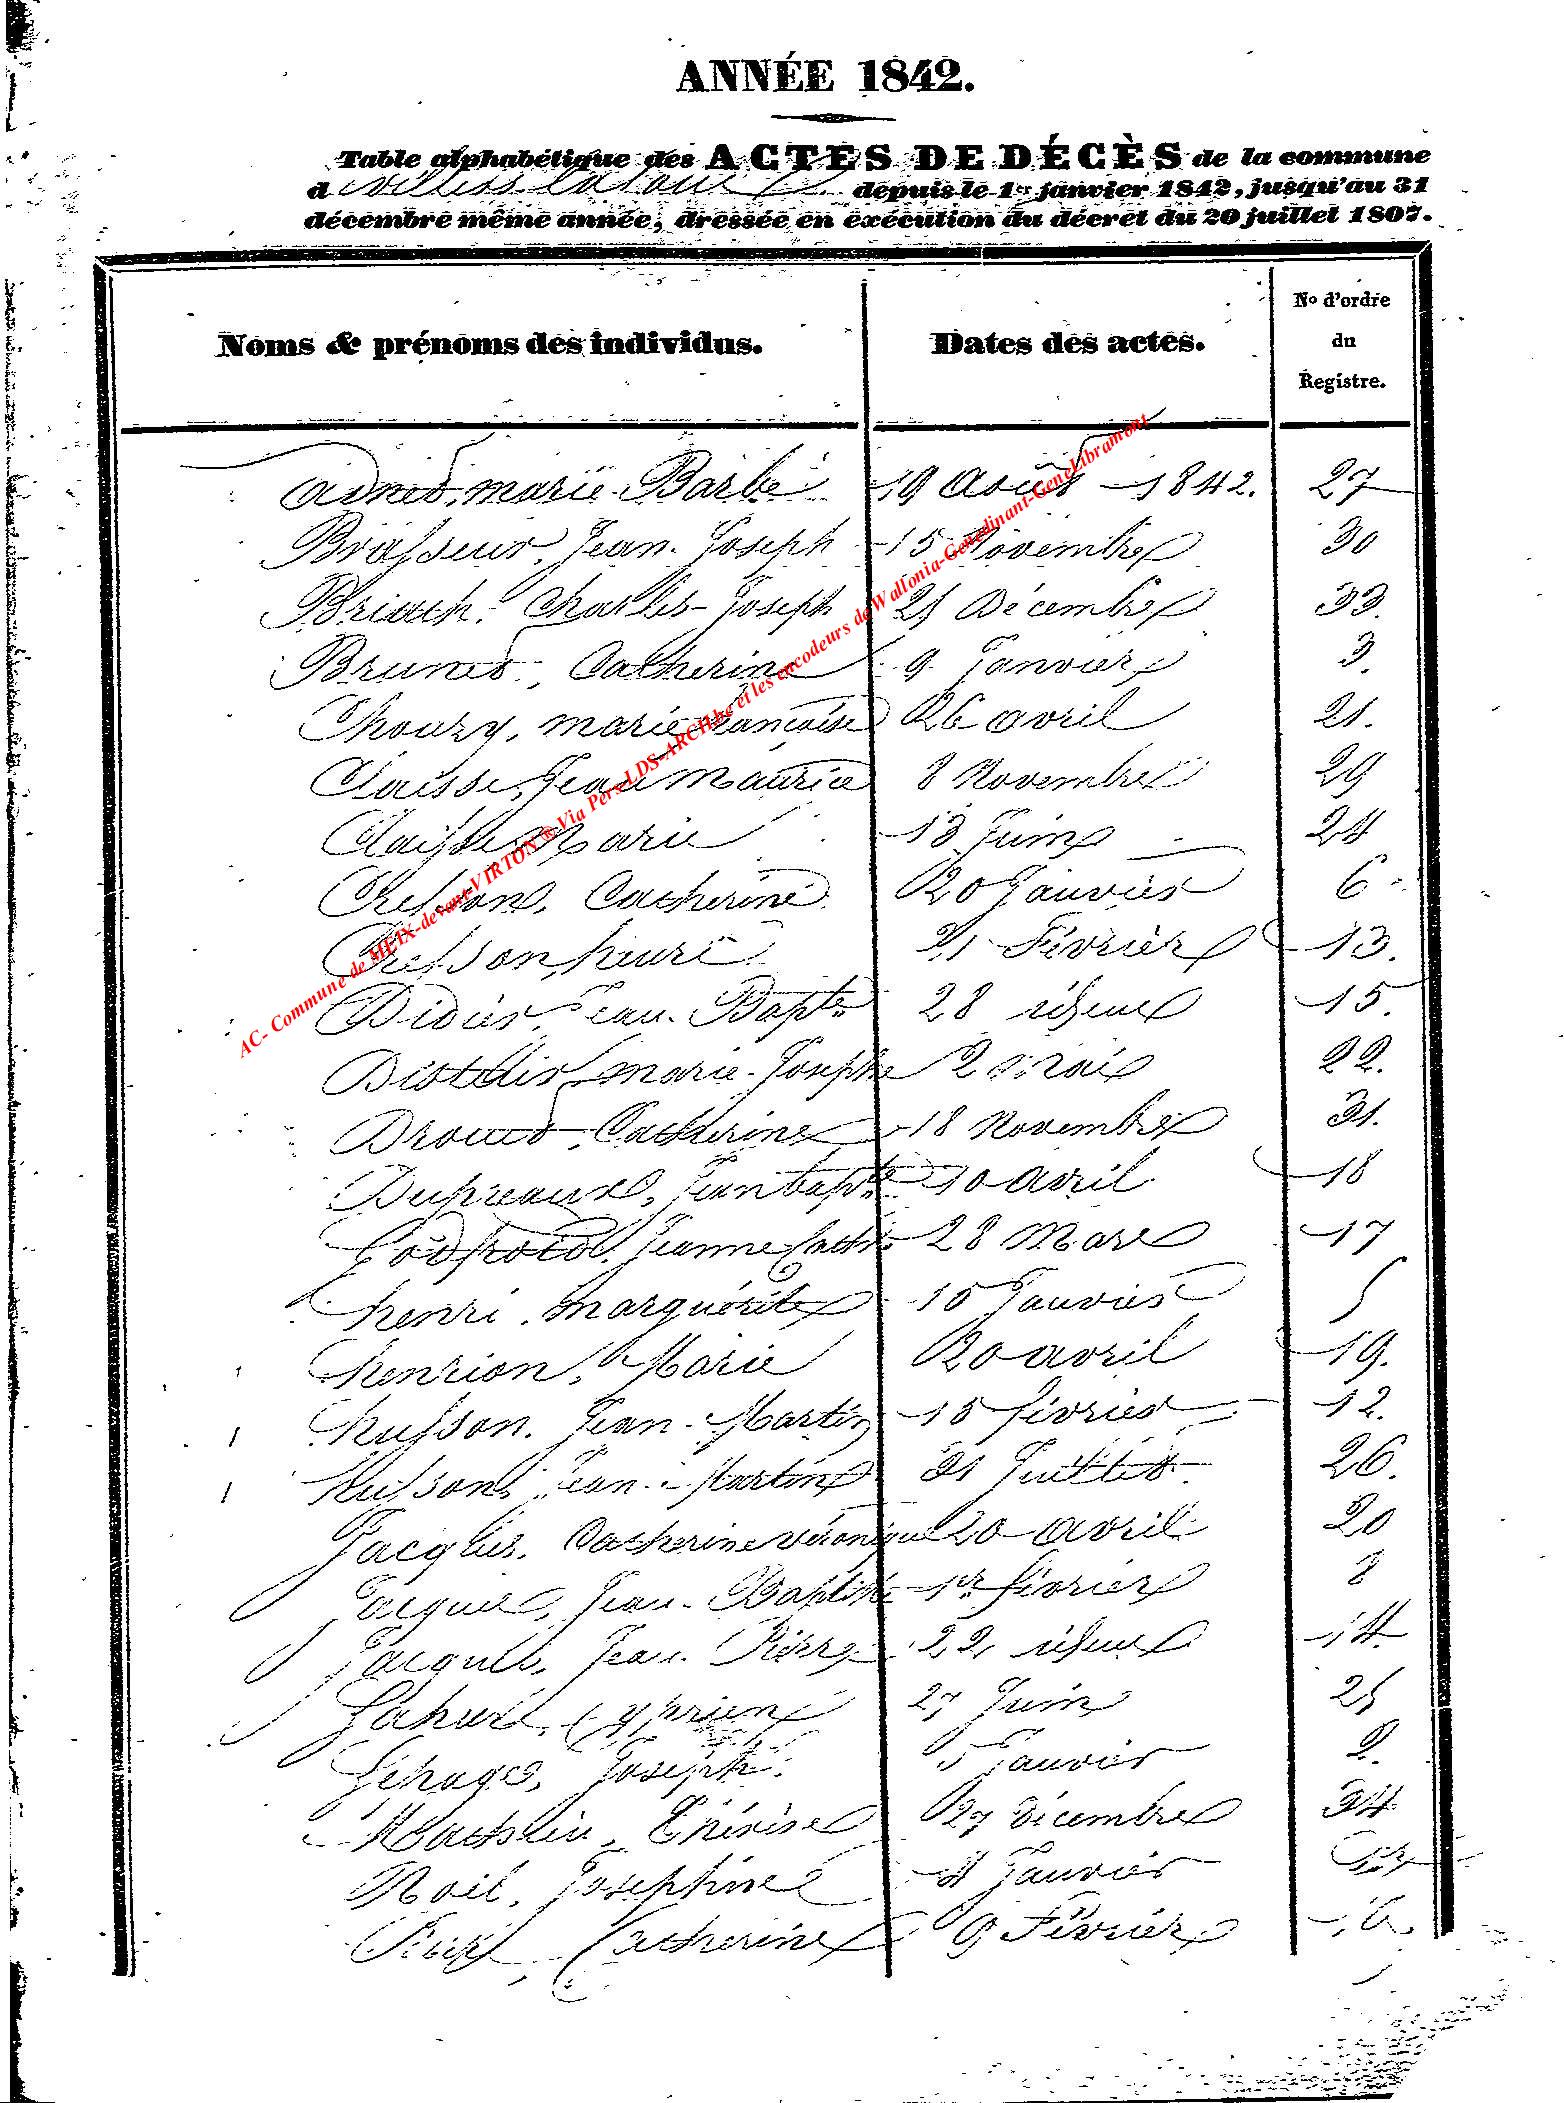 ANNÉE 1842.
Table alphabétique des ACTES DE DÉCÈS de la commune
d villers la loue depuis le 1er janvier 1842, jusqu'au 31
décembre même année, dressée en exécution du décret du 20 juillet 1807.
Noms & prénoms des individus. Dates des actes. No d'ordre du Registre.
Adnet. marie Barbe 19 Août 1842. 27
Brasseur, Jean Joseph 15 Novembre 30
Briach. Charles Joseph 21 Décembre 33.
Brunet, Catherine 9 Janvier 3.
Chouzy, marie françoise 26 avril 21.
Claisse, Jean Maurice 8 Novembre 29
Claisse Marie 13 Juin 24
Cresson, Catherine 20 Janvier 6
Cresson henri 21 Février 13.
Didier, Jean Bapte 28 idem 15.
marie Josephe 2 mai 22.
Drouet, Catherine 18 Novembre 31.
Dupreaux, Jean bapte 10 avril 18
Godfroid, Jeanne Cath. 28 Mars 17
henri. marguerite 10 Janvier 5
henrion, Marie 20 avril 19.
husson. Jean Martin 15 février 12.
husson, Jean Martin 31 Juillet 26.
Jacques. Catherine véronique 20 avril 20
Jacques, Jean Baptiste 1er février 8
Jacques, Jean Pierre 22 idem 14
Lahure, Cyprien 27 Juin 25
Joseph. 5 Janvier 2.
Thérèse 27 décembre 34
Noël, Josephine 4 Janvier 1er
Catherine 9 Février
AC- Commune de MEIX-devant-VIRTON ® Via Pers-LDS-ARCH.be et les encodeurs de Wallonia-Genedinant-GeneLibramont